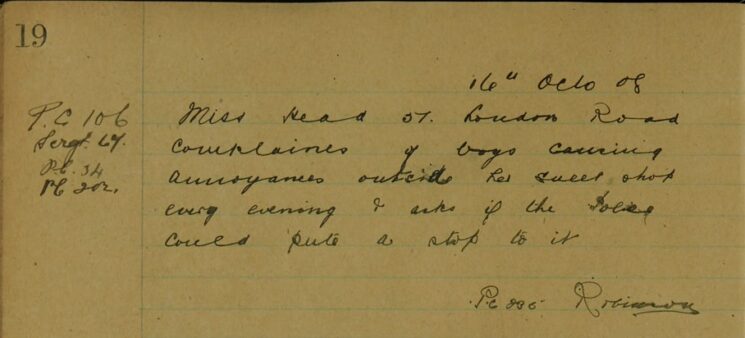 19
16th Octo 08
P.C 106
Sergt. 67.
P.C. 34
PC 202.
Miss Head 57. London Road
Complaines of boys causing
Annoyances outside her sweet shop
every evening & asks if the Police
could pute a stop to it
P.C Robinson